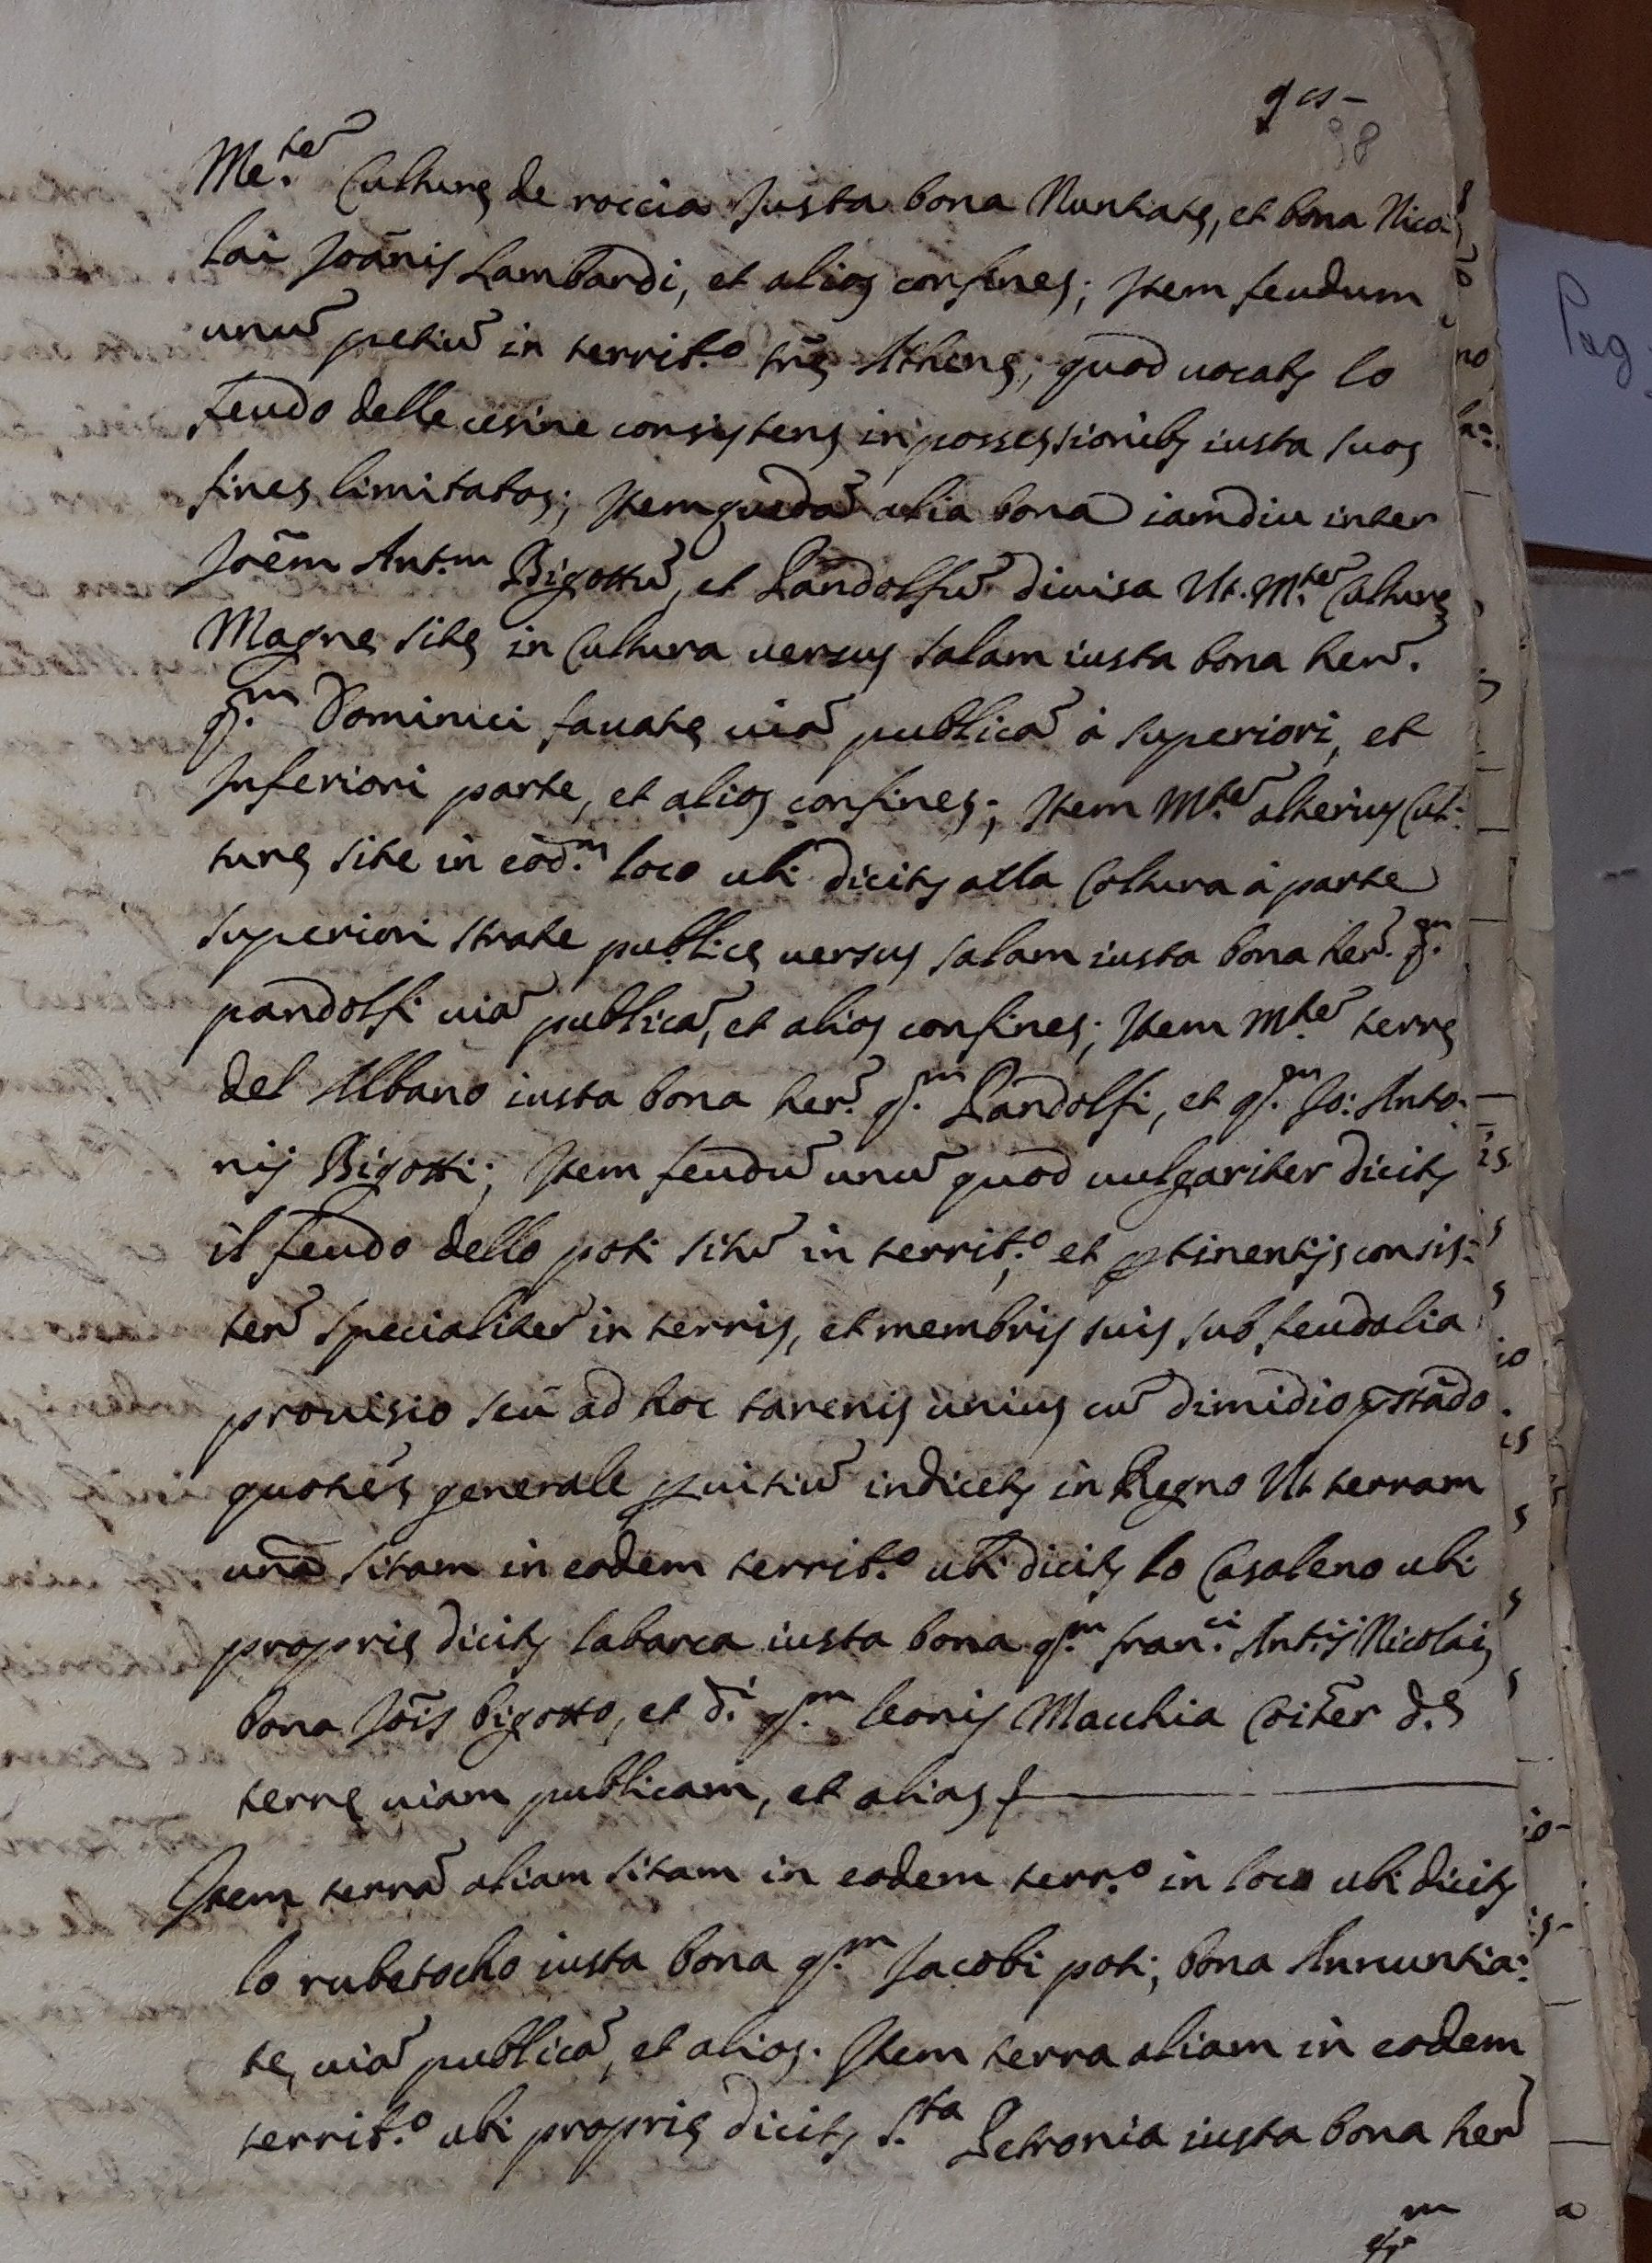 98
Me.ter Culturę de roccia Justa bona Nuntiatę, et bona Nico
lai Joānis Lambardi, et alios confines; Item feudum
unū petiū in territ.o trę Athenę; quod vocatʒ lo
feudo delle cesine consistens in possessionibʒ iusta suos
fines limitatos; Item quedā alia bona iamdiu inter
Joēm Ant.m Bigottū, et Landolfū divisa Ut. M.ter Culturę
Magnę sitę in Cultura versus salam iusta bona her.
q.m Dominici favatę viā publicā à superiori, et
Inferiori parte, et alios confines; Item M.ter alterius Cul:
turę site in eōd.m loco ubi dicitʒ alla Coltura à parte
superiori strate publicę versus salam iusta bona her. q.m
pandolfi viā publicā, et alios confines; Item M.ter terrę
del Albano iusta bona her. q.m Landolfi, et q.m Jo: Anto:
nij Bigotti; Item feudū unū quod vulgariter dicitʒ
il feudo dello poti sitū in territ.o et ptinentijs consis:
ten specialiter in terris, et membris suis sub feudalia
provisio seu ad hoc tarenis unius cū dimidio pstādo
quotiēs generale servitiū indicetʒ in Regno Ut terram
unā sitam in eodem territ.o ubi dicitʒ lo Casaleno ubi
proprię dicitʒ labarca iusta bona q.m fran.ci Ant.ij Nicolai
bona Jōis bigotto, et d.i q.m leonis Macchia Coiter d.ę
terrę viam publicam, et alias
Item terrā aliam sitam in eodem terr.o in loco ubi dicitʒ
lo rubetocho iusta bona q.m Jacobi poti, bona Annuntia:
tę, viā publicā, et alios. Item terra aliam in eodem
territ.o ubi proprię dicitʒ S.ta Petronia iusta bona her
q.m
Pag